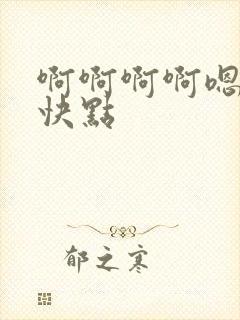 啊啊啊啊嗯
快點
郁之寒